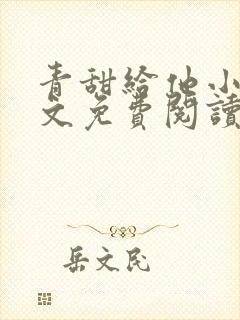 青甜給他小
文免費閱讀
岳文民